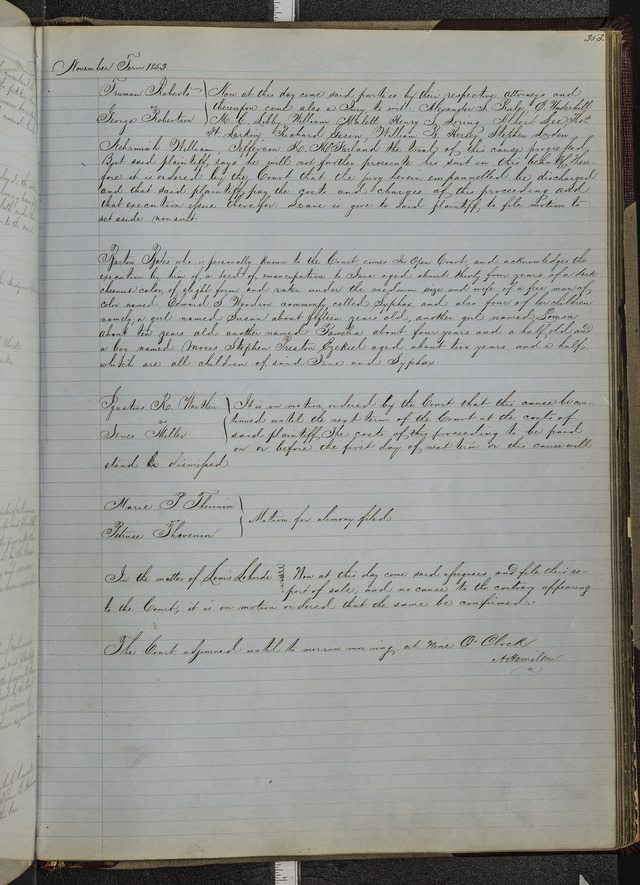 353.
November Term 1853
Truman Roberts
vs
George Robertson
Now at this day come said parties by their respective attorneys and
thereupon come also a Jury to wit. Alexander J. O Underhill
M. C. Libby William Henry L. Loring Lee Thos
H. Larkin Richard William R. Stephen Layden
Nehemiah William, Jefferson K. McFarland the trial of this cause progressed,
But said plaintiff says he will not further prosecute his suit in this behalf There
fore it is ordered by the Court that the jury herein empannelled be discharged
and that said plaintiff pay the costs and charges of this proceeding and
that execution issue therefor. Leave is give to said plaintiff to file motion to
set aside non suit.
Barton Bates who is personally known to the Court comes In Open Court, and acknowledges the
execution by him of a deed of emancipation to Jane aged about thirty four years of a dark
chesnut color, of slight form and rater under the medium size and wife of a free man of
color named Edward S Woodson commonly called Syphax, and also four of her children
namely; a girl named Susan about fifteen years old, another girl named Louisa
about ten years old another named Pamelia about four years and a half old, and
a boy named Moses Stephen Preston Ezekiel aged about two years and a half,
which are all children of said Jane and Syphax.
Ignatius R. Warthen
vs
James Miller
It is on motion, ordered by the Court that this cause be con-
tinued until the next term of the Court at the costs of
said plaintiff, The costs of this proceeding to be paid
on or before the first day of next term or this cause will
stand dismissed
Marie P Thevenin
vs
Thevenin
Motion for alimony filed
In the matter of Louis Now at this day come said assignees and file their re-
port of sale, and no cause to the contrary appearing
to the Court, it is on motion ordered that the same be confirmed.-
The Court adjourned until to morrow morning, at nine O'Clock
A Hamilton